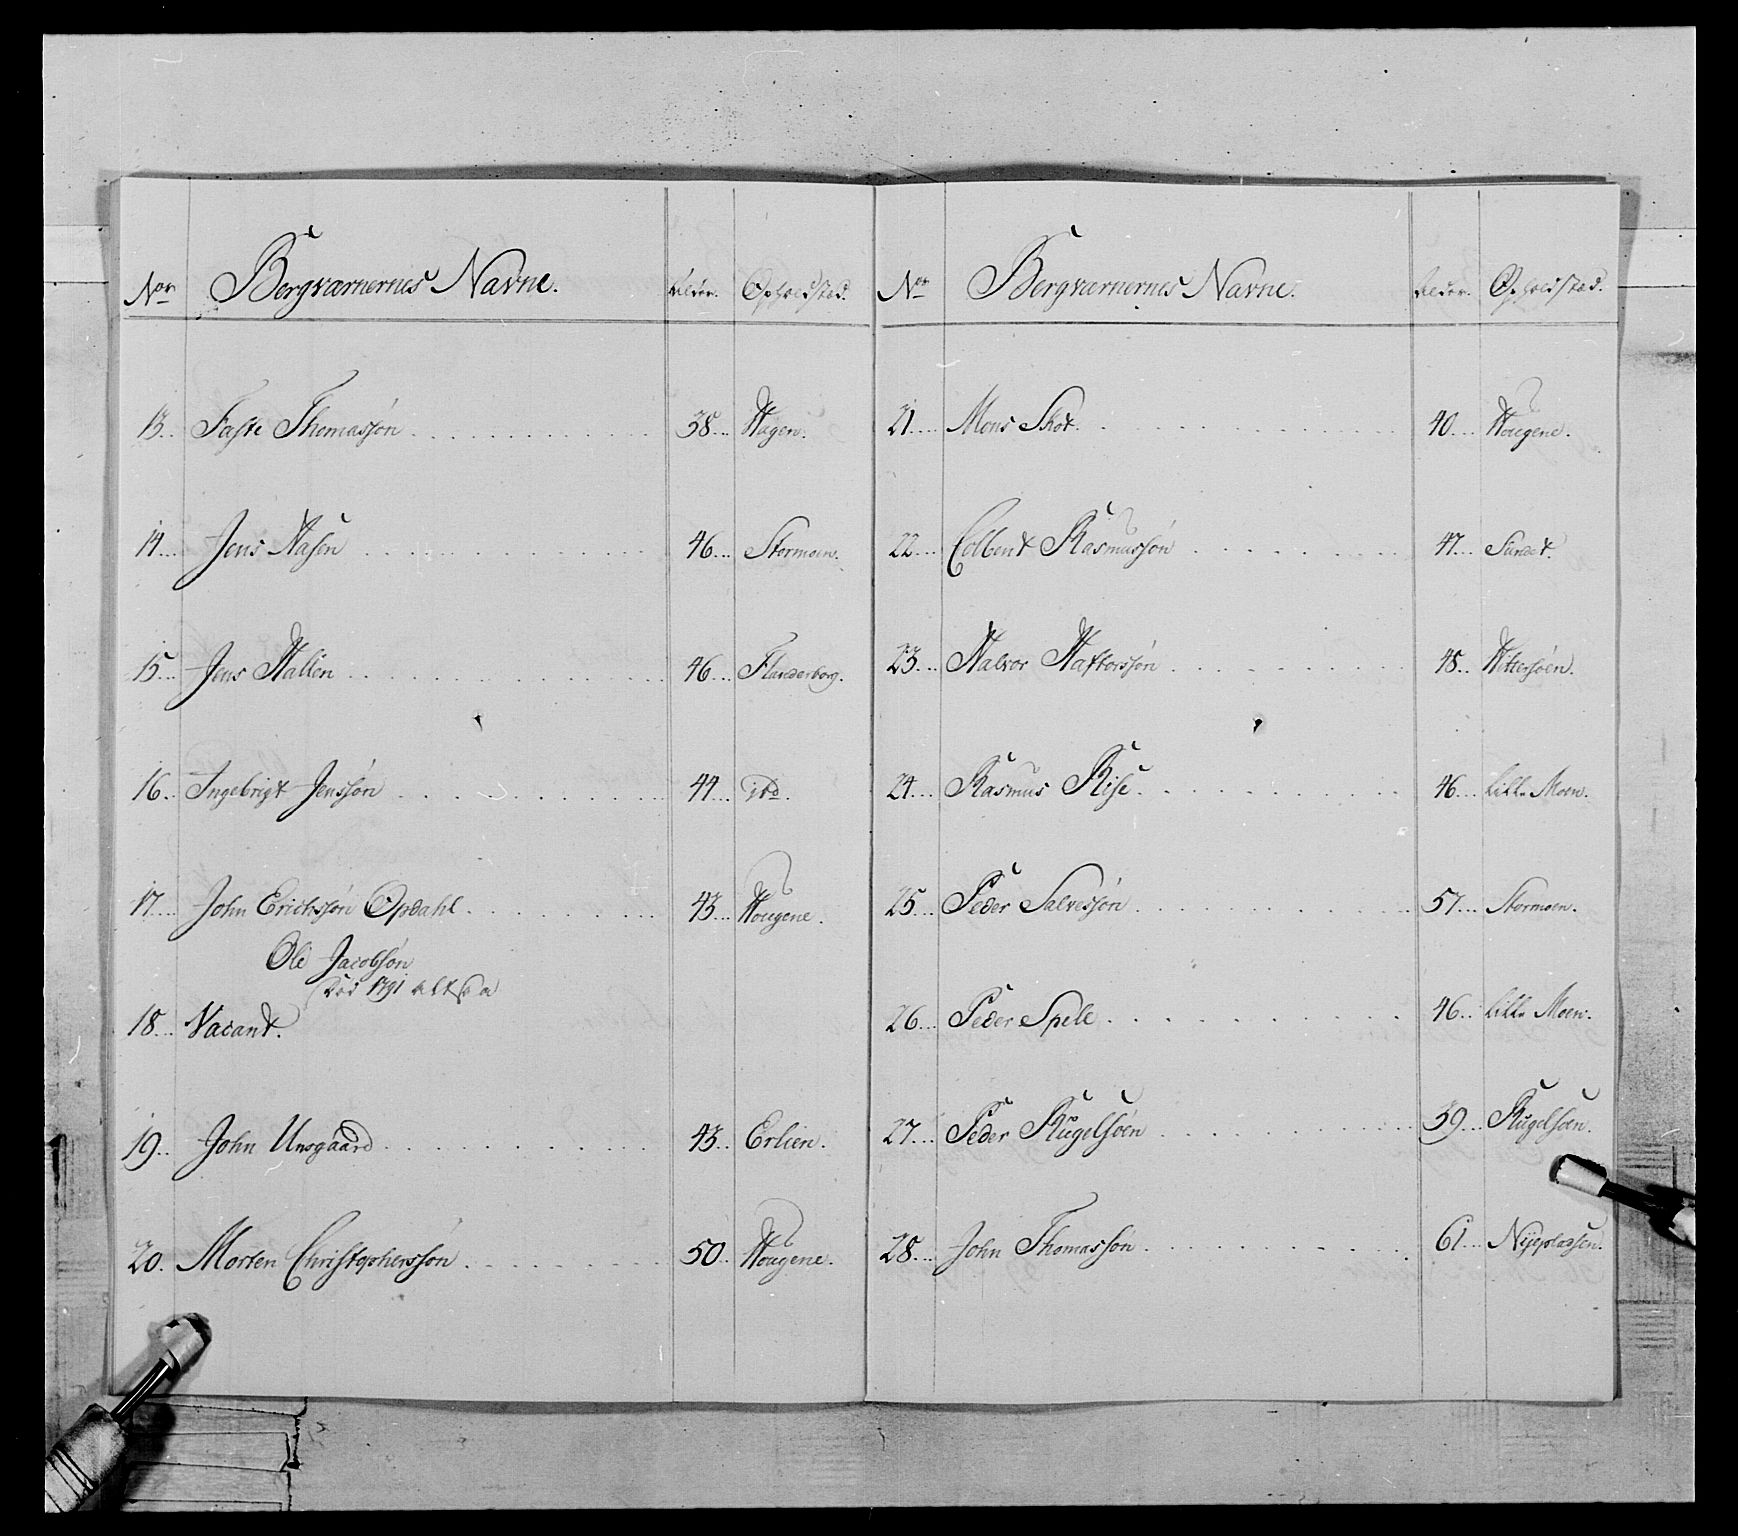 No Bergværnernes Navne. Alder. Opholdsted.
13... Faste Thomassøn 38... Hagen.
14... Jens Aasen 46... Stormoen.
15... Jens Hallen 46... Flanderborg.
16... Ingebrigt Jenssøn 44... ibd.
17... John Erichssøn Opdahl 43... Hougene.
Ole Jacobsøn
død 1791 altsaa
18... Vacant.
19... John Unsgaard 43... Erlien.
20. Morten Christophersøn 50... Hougene.
No Bergværnernes Navne. Alder. Opholdsted.
21... Mons Skot 40... Hougene.
22... Colbent Rasmussøn 47... Sundet.
23... Halvor Haftorssøn 48... Hittersøen.
24... Rasmus Riise 46... Lille Moen.
25... Peder Salvessøn 57... Stormoen.
26... Peder Spell 46... Lille Moen.
27... Peder Kugelsøen 39... Kugelsøen.
28... John Thomassøn 61... Nyeplassen.